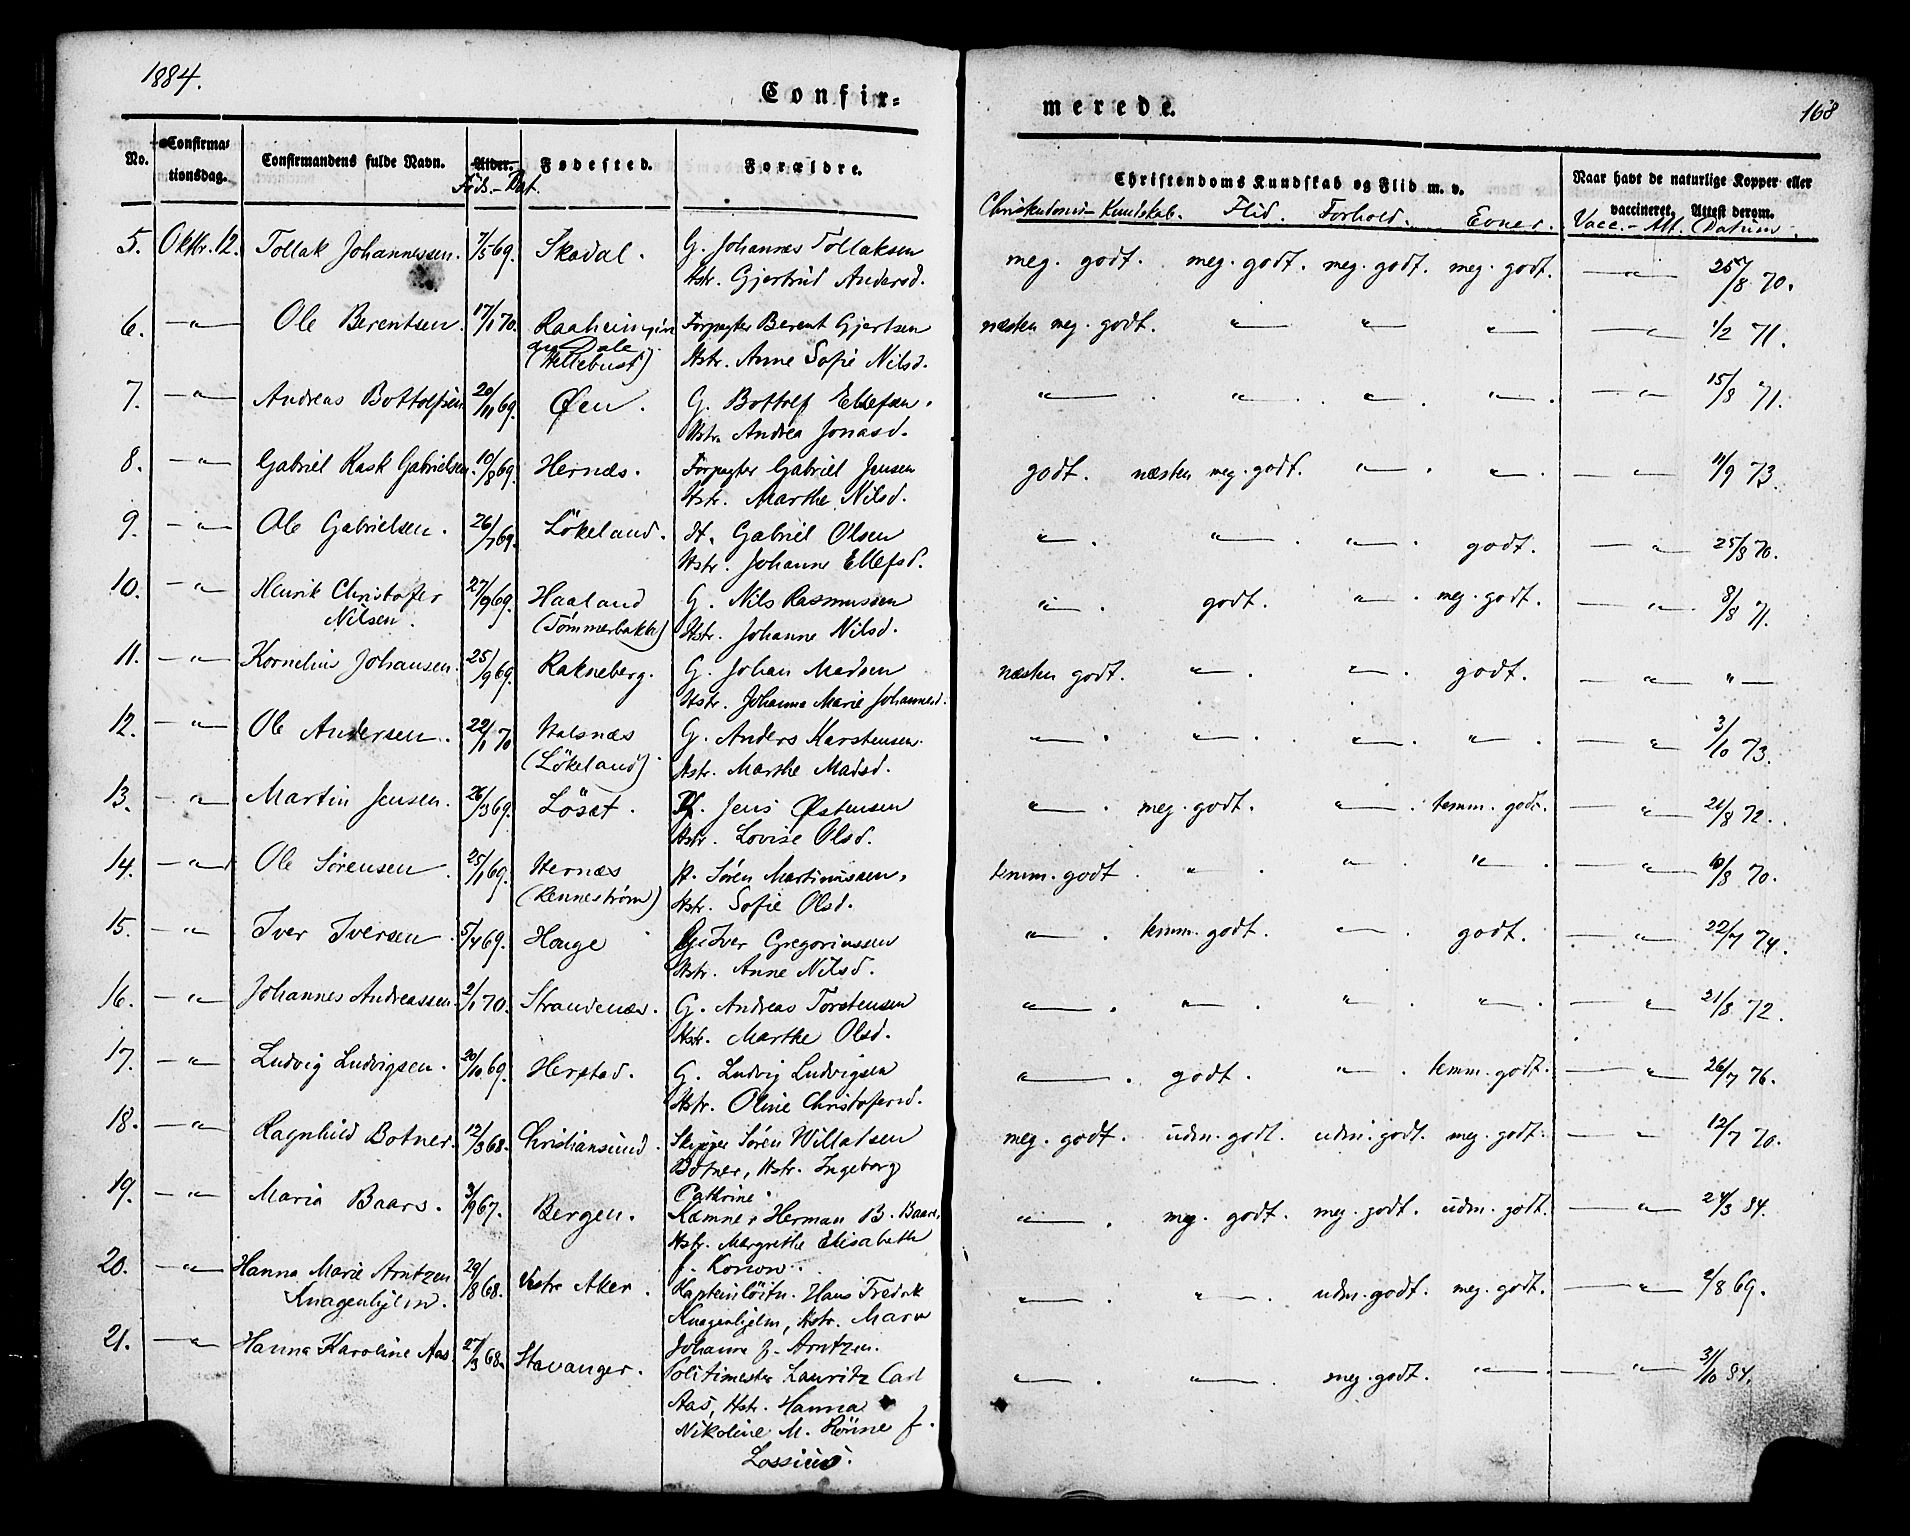 1884.
Confir=
merede.
168
No.
Confirma=
tionsdag.
Confirmandens fulde Navn.
Alder.
Føds.-Dat.
Fødested.
Forældre.
Christendoms Kundskab og Flid m. v.
Naar havt de naturlige Kopper eller
vaccineret, Attest derom.
Christendoms-Kundskab. Flid. Forhold. Evner. Vacc.-Att. Datum.
5. Oktbr. 12. Tollak Johannessen. 7/5 69. Skadal. G. Johannes Tollaksen meg. godt. meg. godt. meg. godt. meg. godt. — " — 25/8 70.
Hstr. Gjertrud Andersd.
6. — " — Ole Berentsen. 17/1 70. Raaheim Forpagter Berent Gjertsen næsten meg. godt. " — " — " — — " — 1/2 71.
Dale
(Hellebust) Hstr. Anne Sofie Nilsd.
7. — " — Andreas Bottolfsen 20/11 69. Øen. G. Bottolf Ellefsen. " — . " — . " — . " — . — " — 15/8 71.
Hstr. Andrea Jonasd.
8. — " — Gabriel Rask Gabrielsen. 10/8 69. Hernæs. Forpagter Gabriel Jensen godt. næsten meg. godt. " — . " — . — " — 11/9 73.
Hstr. Marthe Nilsd.
9. — " — Ole Gabrielsen. 26/7 69. Lökeland. H. Gabriel Olsen " — . " — . " — . godt. — " — 25/8 70.
Hstr. Johanne Ellefsd.
10. — " — Henrik Christofer 27/9 69. Haaland G. Nils Rasmussen " — . godt. " — . meg. godt. — " — 8/8 71.
Nilsen. (Tömmerbakke) Hstr. Johanne Nilsd.
11. — " — Kornelius Johansen. 25/9 69. Rakneberg. G. Johan Madsen næsten godt. " — . " — . godt. — " — " —
Hstr. Johanna Marie Johannesd.
12. — " — Ole Andersen. 22/1 70 Halsnæs G. Anders Karstensen. " — . " — . " — . " — . — " — 3/10 73.
(Lökeland) Hstr. Marthe Madsd.
13. — " — Martin Jensen. 26/3 69. Löset. Pf. Jens Østensen " — . meg. godt. " — . temm. godt. — " — 21/8 72.
Hstr. Lovise Olsd.
14. — " — Ole Sörensen. 25/1 69. Hernæs H. Sören Martinussen, temm. godt. " — . " — . " — . — " — 10/8 70.
(Renneström) Hstr. Sofie Olsd.
15. — " — Iver Iversen. 5/4 69. Hauge G. Iver Gregoriussen " — . temm. godt. " — . godt. — " — 22/7 74.
Hstr. Anne Nilsd.
16. — " — Johannes Andreassen. 2/1 70. Strandenæs. G. Andreas Torstensen " — . " — . " — . " — . — " — 21/8 72.
Hstr. Marthe Olsd.
17. — " — Ludvig Ludvigsen. 20/10 69. Herstad. G. Ludvig Ludvigsen " — . godt. " — . temm. godt. — " — 26/7 76.
Hstr. Oline Christofersd.
18. — " — Ragnhild Botner. 12/3 68. Christiansund. Skipper Sören Willadsen meg. godt. udm. godt. udm. godt. meg. godt. — " — 12/7 70.
Botner, Hstr. Ingeborg
Cathrine.
19. — " — Maria Baars. 3/9 67. Bergen. Kæmner Herman B. Baars, " — . meg. godt. meg. godt. udm. godt. — " — 24/3 84.
Hstr. Margrethe Elisabeth
f. Konow.
20. — " — Hanna Marie Arntzen 29/8 68. Vestre Aker. Kapteinlöitn. Hans Fredrik " — . " — . udm. godt. meg. godt. — " — 2/8 69.
Knagenhjelm. Knagenhjelm, Hstr. Maren
Johanne f. Arntzen.
21. — " — Hanna Karoline Aas. 27/3 68. Stavanger. Politimester Lauritz Carl " — . " — . meg. godt. " — . — " — 31/10 84.
Aas, Hstr. Hanna
Nikoline M. Rönne f.
Lossius.